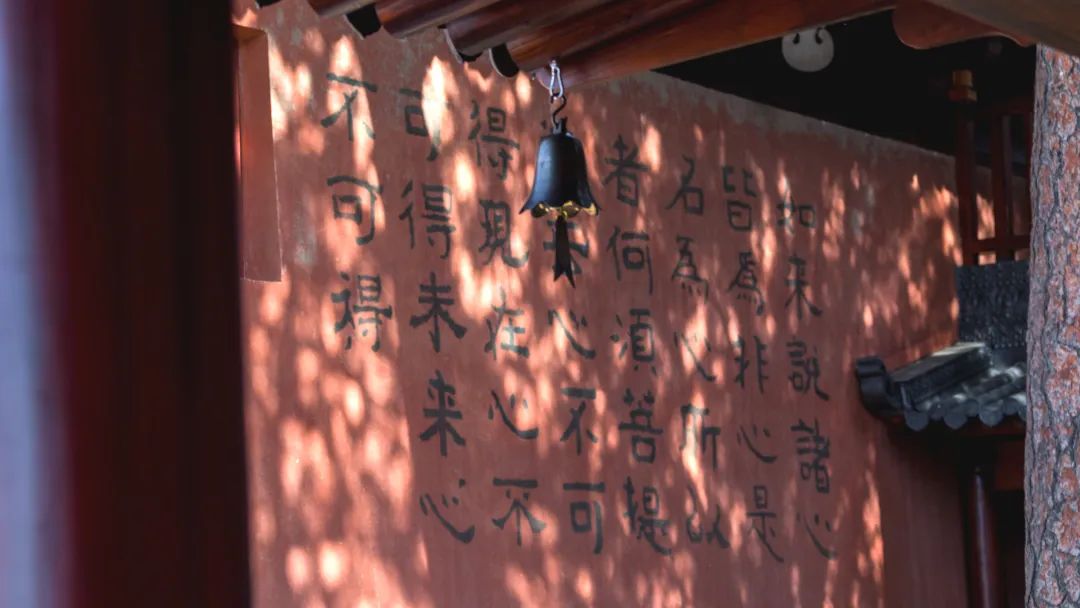 如来說諸心
皆爲非心是
名為心所以
者何須菩提
心不可
得現在心不
可得未来心
不可得